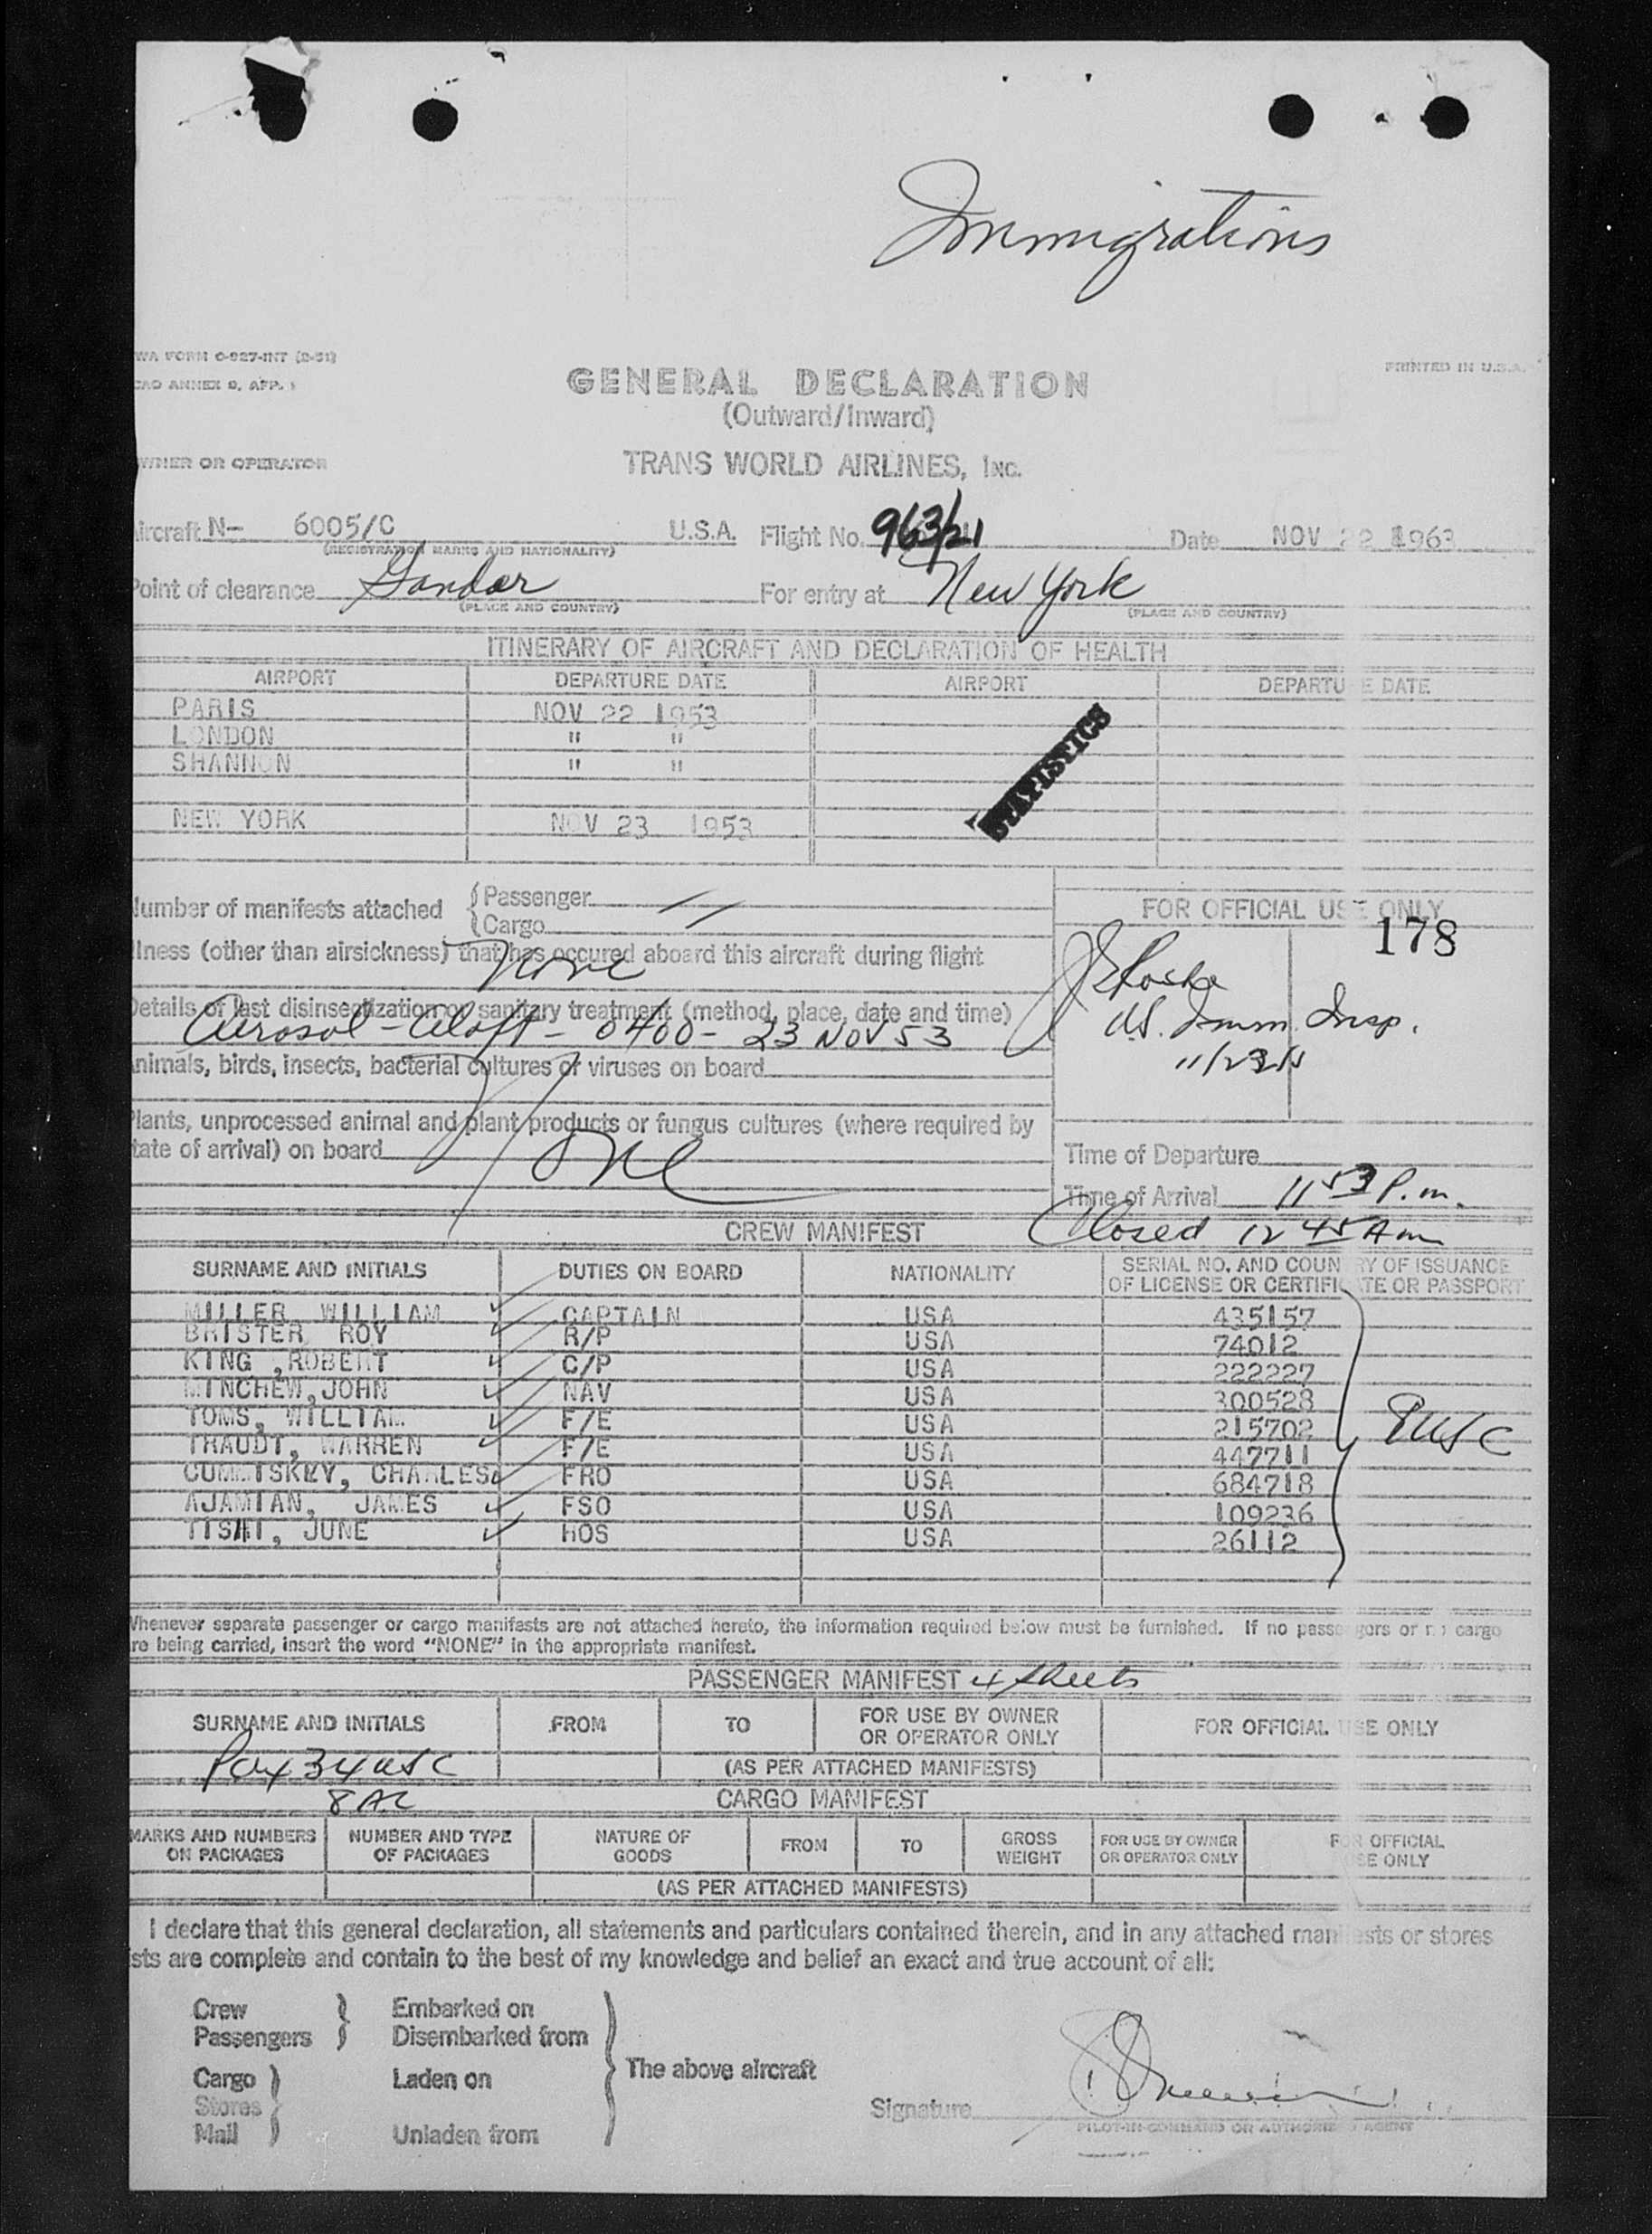 Immigrations
WA FORM C-927-INT (2-51)
CAO ANNEX 9, APP. 1
PRINTED IN U.S.A.
GENERAL DECLARATION
(Outward/Inward)
WNER OR OPERATOR
TRANS WORLD AIRLINES, INC.
ircraft N- 6005/C U.S.A. Flight No. 963/21 Date NOV 22 1963
(REGISTRATION MARKS AND NATIONALITY)
Point of clearance Gander For entry at New York
(PLACE AND COUNTRY) (PLACE AND COUNTRY)
ITINERARY OF AIRCRAFT AND DECLARATION OF HEALTH
AIRPORT DEPARTURE DATE AIRPORT DEPARTURE DATE
PARIS NOV 22 1953
LONDON " "
SHANNON " "
STATISTICS
NEW YORK NOV 23 1953
Number of manifests attached { Passenger
{ Cargo
FOR OFFICIAL USE ONLY
178
llness (other than airsickness) that has occured aboard this aircraft during flight
None
Details of last disinsectization or sanitary treatment (method, place, date and time)
Aerosol - Aloft - 0400 - 23 NOV 53
U.S. Imm. Insp.
Animals, birds, insects, bacterial cultures or viruses on board
Plants, unprocessed animal and plant products or fungus cultures (where required by
tate of arrival) on board
Time of Departure
Time of Arrival 11 53 P.m.
CREW MANIFEST Closed 12 45 Am
SURNAME AND INITIALS DUTIES ON BOARD NATIONALITY SERIAL NO. AND COUNTRY OF ISSUANCE
OF LICENSE OR CERTIFICATE OR PASSPORT
MILLER WILLIAM CAPTAIN USA 435157
BRISTER ROY R/P USA 74012
KING ,ROBERT C/P USA 222227
MINCHEW,JOHN NAV USA 300528
TOMS, WILLIAM F/E USA 215702
THAUDT, WARREN F/E USA 447711
CUMMISKEY, CHARLES FRO USA 684718
AJAMIAN, JAMES FSO USA 109236
TISHI, JUNE HOS USA 26112
9 USC
Whenever separate passenger or cargo manifasts are not attached hereto, the information required below must be furnished. If no passengers or no cargo
re being carried, insert the word "NONE" in the appropriate manifest.
PASSENGER MANIFEST 4 sheets
SURNAME AND INITIALS FROM TO FOR USE BY OWNER OR OPERATOR ONLY FOR OFFICIAL USE ONLY
Pax 34 USC (AS PER ATTACHED MANIFESTS)
8 AL CARGO MANIFEST
MARKS AND NUMBERS ON PACKAGES NUMBER AND TYPE OF PACKAGES NATURE OF GOODS FROM TO GROSS WEIGHT FOR USE BY OWNER OR OPERATOR ONLY FOR OFFICIAL USE ONLY
(AS PER ATTACHED MANIFESTS)
I declare that this general declaration, all statements and particulars contained therein, and in any attached manifests or stores
sts are complete and contain to the best of my knowledge and belief an exact and true account of all:
Crew } Embarked on
Passengers } Disembarked from
The above aircraft
Cargo } Laden on
Stores
Mail } Unladen from
Signature
PILOT-IN-COMMAND OR AUTHORIZED AGENT